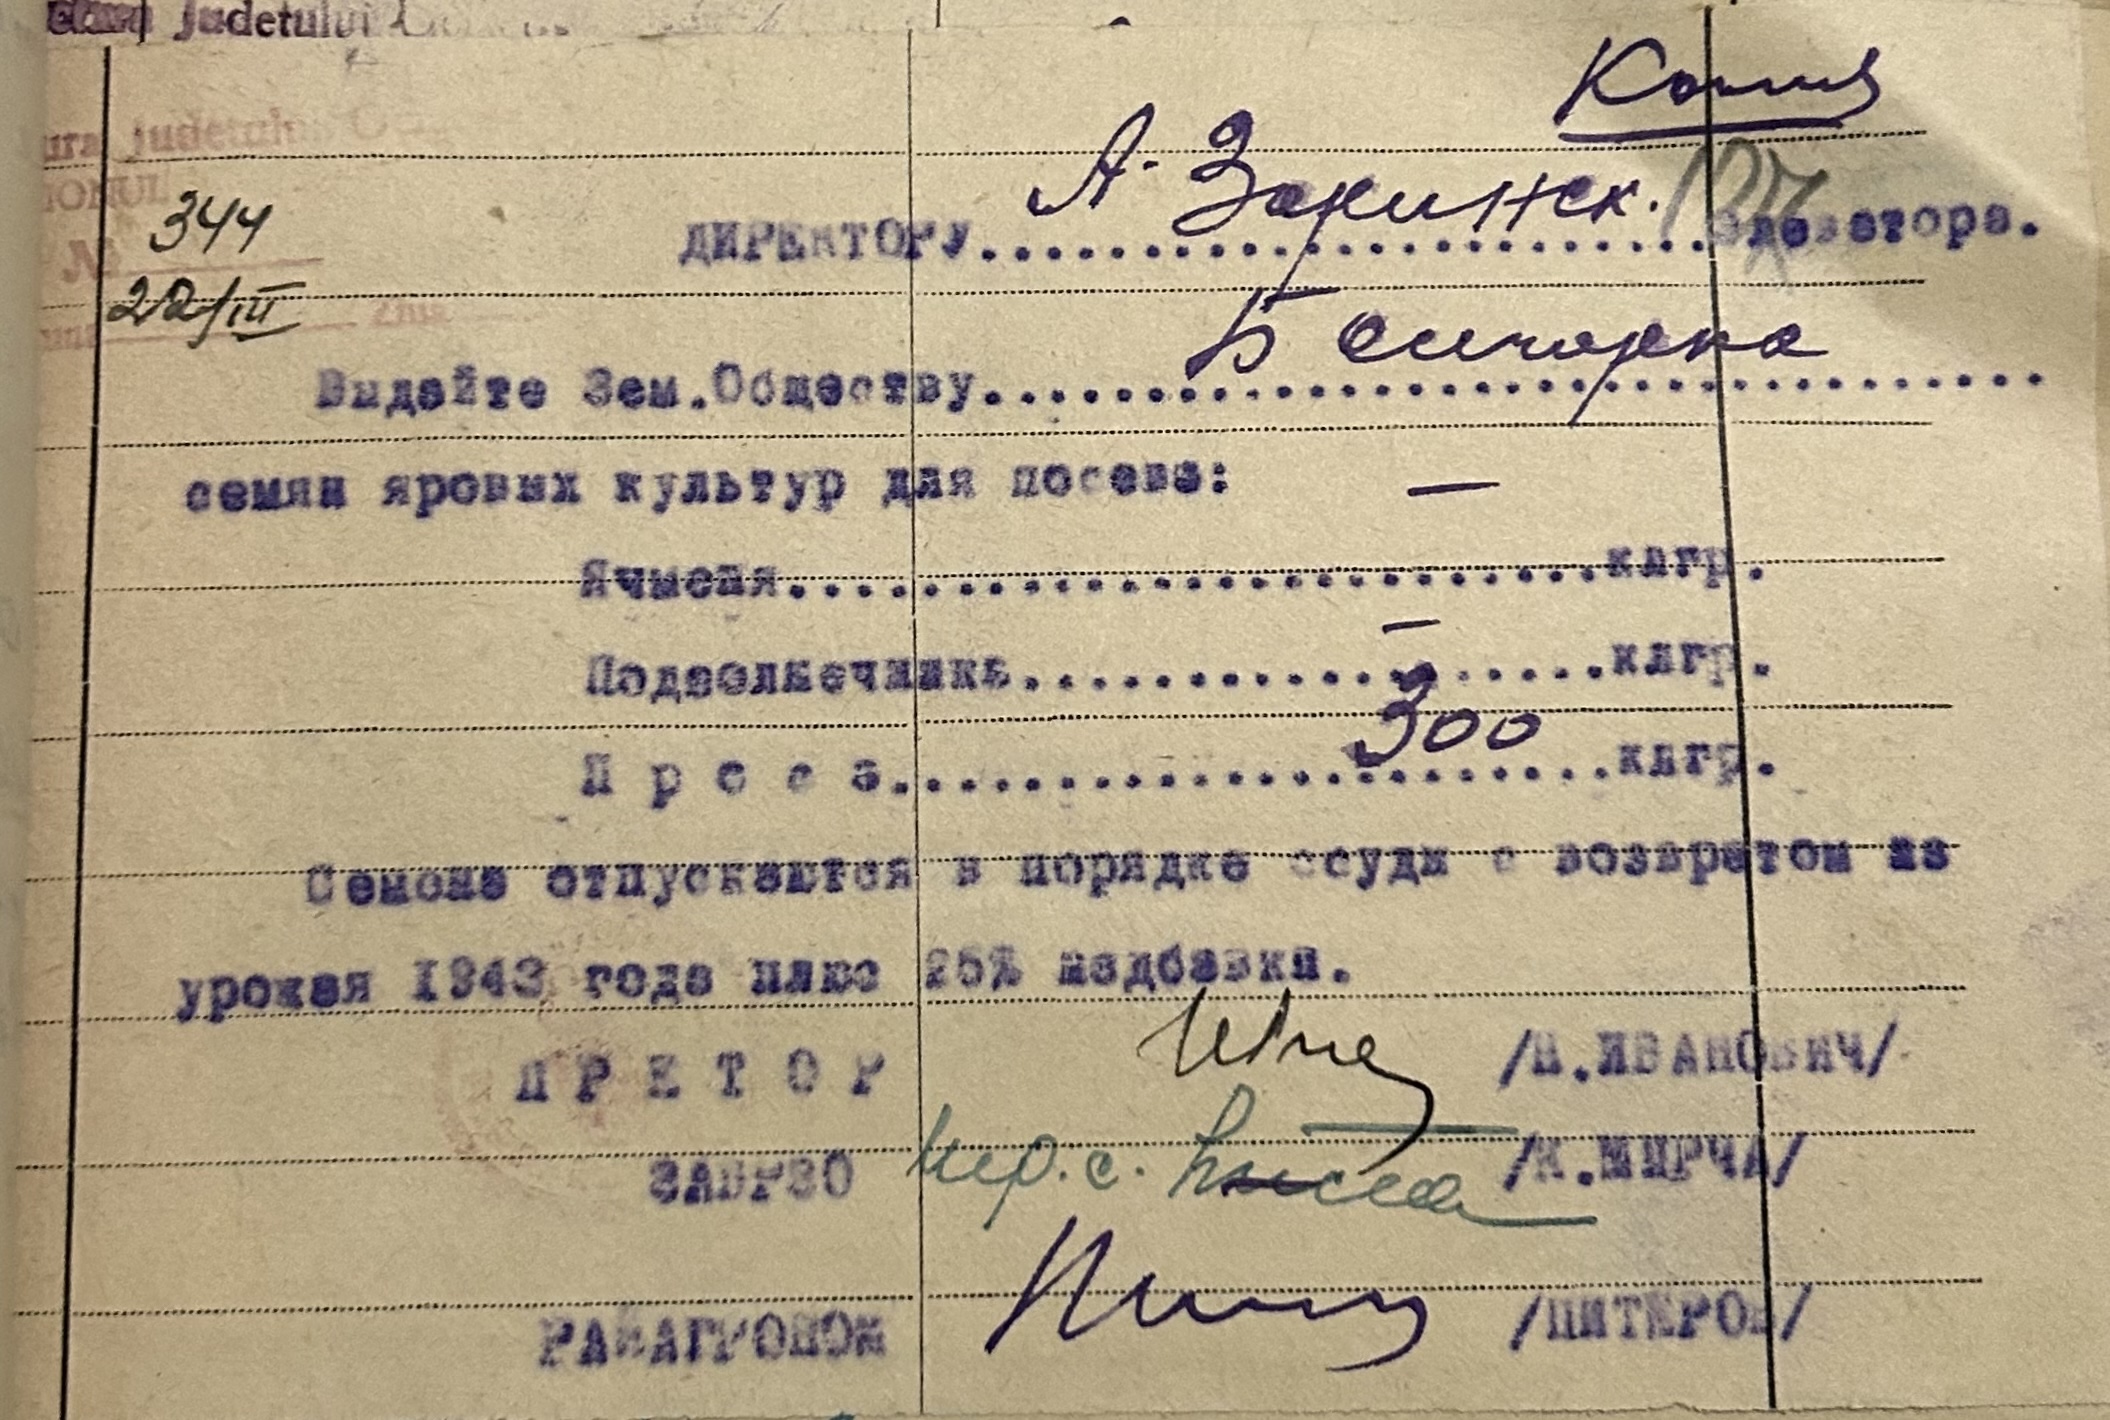 Judetului
Копия
Judetului
№
344
22/III
ДИРЕКТОРУ А. Закинск. элеватора.
Выдайте Зем.Обществу
семян яровых культур для посева: —
Ячменя клгр.
—
Подсолнечника клгр.
П р о с а 300 клгр.
Семена отпускаются в порядке ссуды с возвратом из
урожая 1943 года плюс 25% надбавки.
П Р Е Т О Р /П.ИВАНОВИЧ/
ЗАВРЗО /К.МИРЧА/
РАЙАГРОНОМ /ПИТЕРОВ/